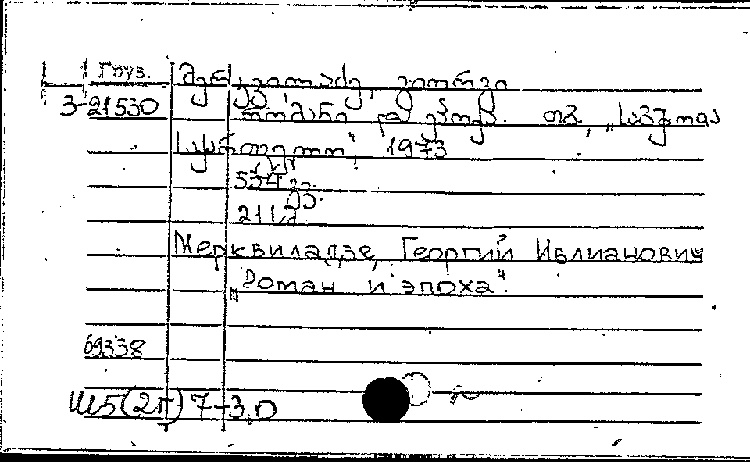 Груз.
მერკვილაძე, გიორგი
3-21530 რომანი და ეპოქა. თბ., „საბჭოთა
საქართველო", 1973
534 გვ.
Мерквиладзе, Георгий Ивлианович
"Роман и эпоха".
69338
Ш5(2Г)7-3,0